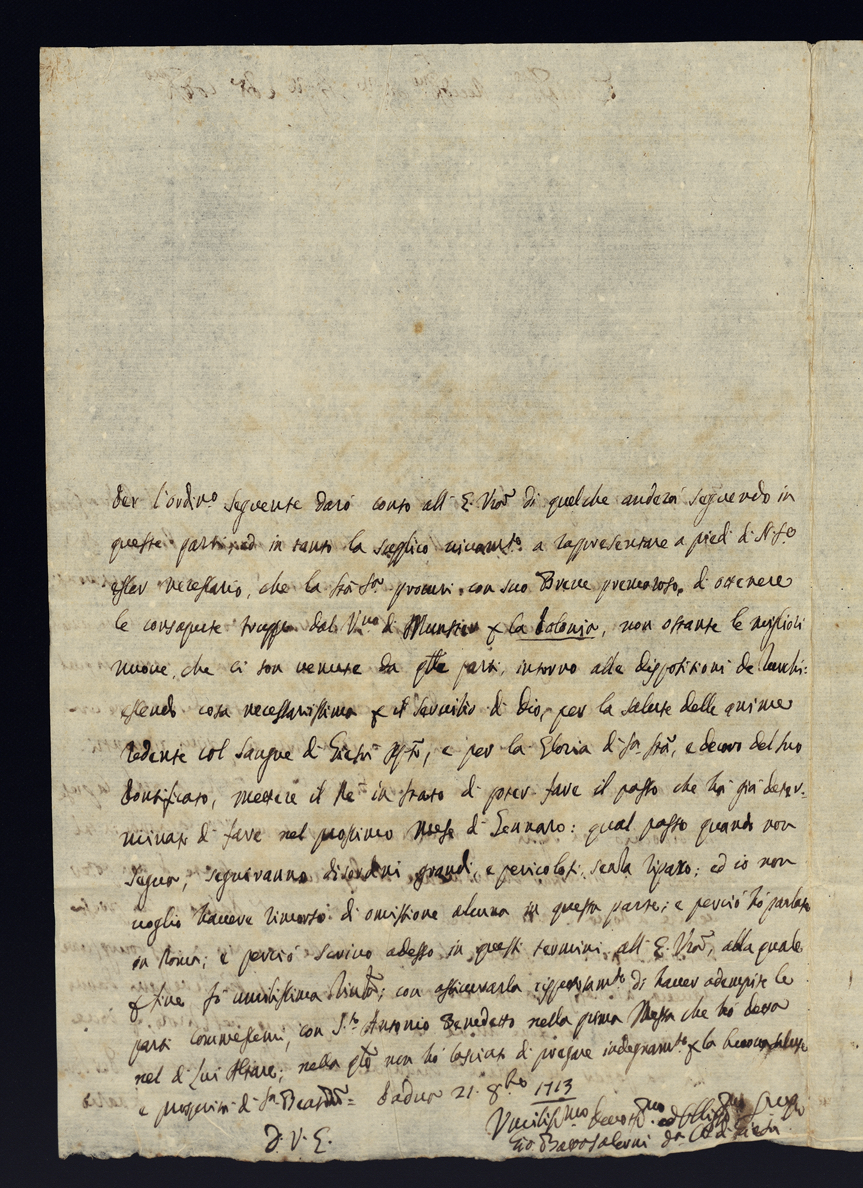 Per l'ordin.o seguente darò conto all' E. Vra di quelche anderà seguendo in
queste parti, ed in tanto la supplico vivam.te a rappresentare a piedi di N. S.e
esser necessario, che la Stà Sa procuri con suo Breve premuroso, di ottenere
le consapute truppe dal V.vo di Munster p la Polonia, non ostante le migliori
nuove, che ci son venute da qlle parti, intorno alle dispositioni de Turchi:
essendo cosa necessarissima p il servitio di Dio, per la salute delle anime
redente col sangue di Giesù Xpto, e per la Gloria di Sa Stà, e decoro del suo
Pontificato, mettere il Rè in stato di poter fare il passo che hà già deter-
minato di fare nel prossimo Mese di Gennaro: qual passo quando non
segua, seguiranno disordini grandi, e pericolosi, senza riparo; ed io non
voglio havere rimorso di omissione alcuna in questa parte; e perciò hò parlato
in Roma; e perciò scrivo adesso in questi termini all' E. Vra, alla quale
p fine fò umilissima; con assicurarla di haver adempite le
parti commessemi, con S.to Antonio Benedetto nella prima Messa che hò detta
nel di Lui Altare; nella qle non hò lasciato di pregare indegnam.te p la buona salute
e prosperità di Sa Beatne = Padova 21. 8bre 1713
D. V. E.
Umiliss.mo Devot.mo ed Obligo.mo
Gio. Batta Salerni da C.a di Giesù